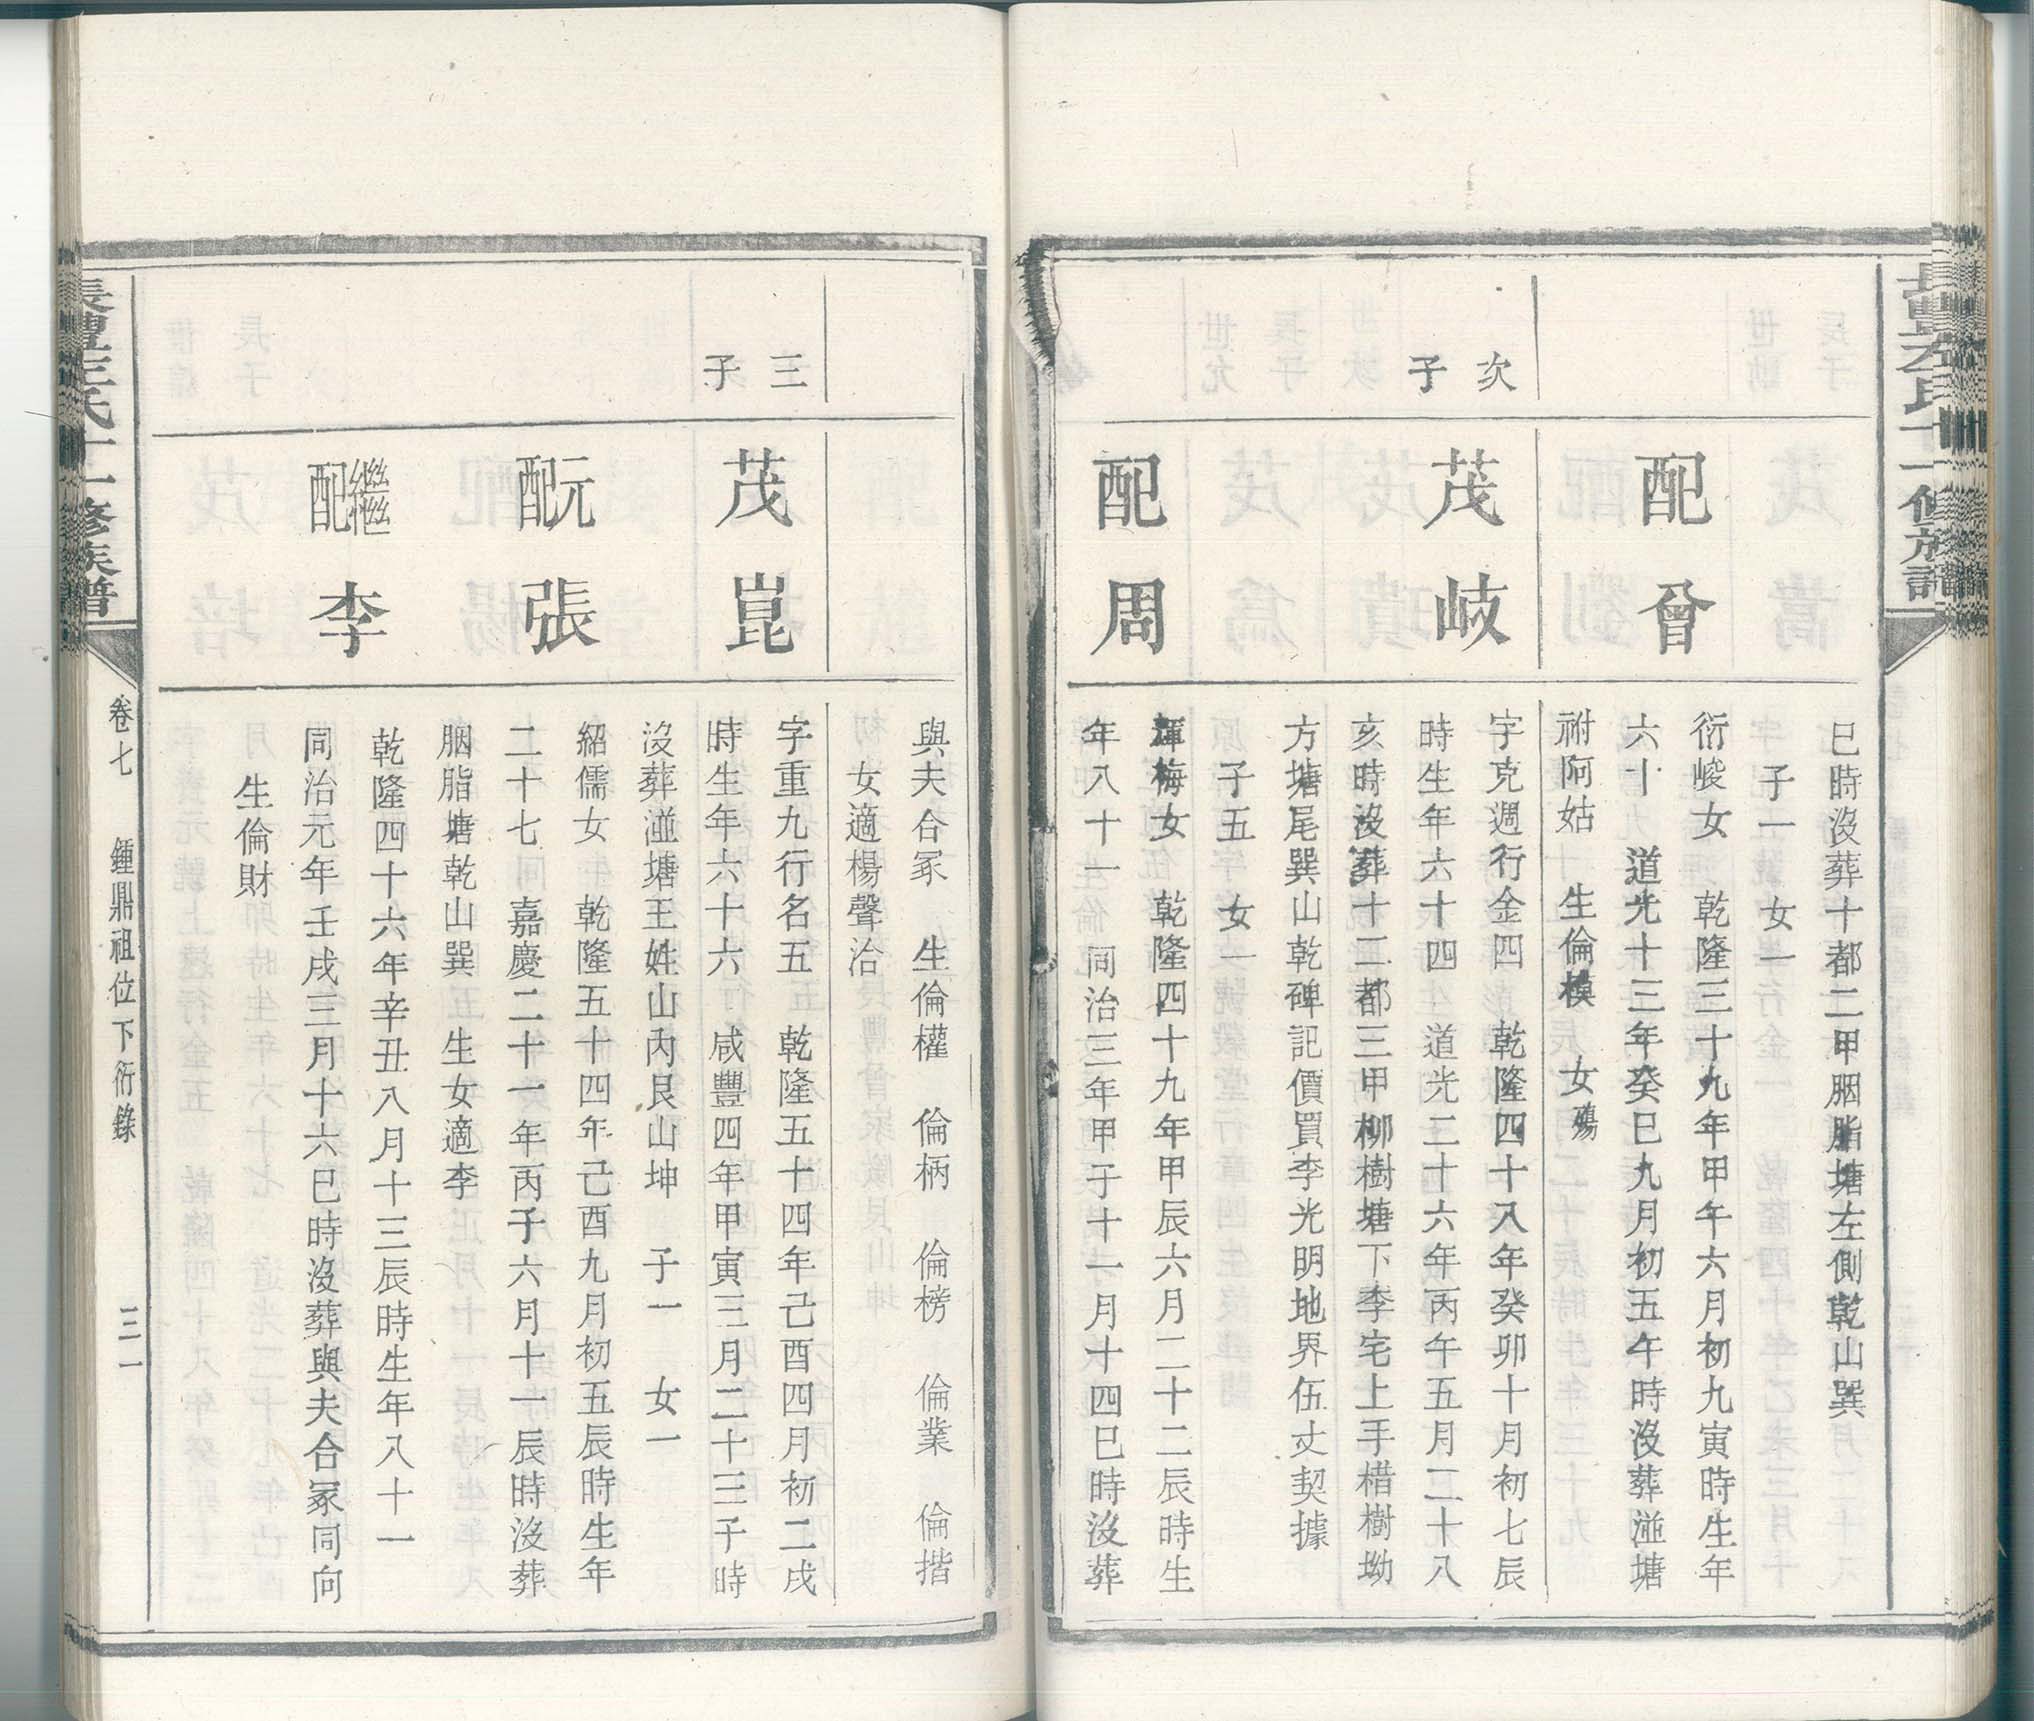 長豐左氏十一修族譜
巳時沒葬十都二甲胭脂塘左側乾山巽
子一　女一
配曾
衍峻女　乾隆三十九年甲午六月初九寅時生年
六十　道光十三年癸巳九月初五午時沒葬湴塘
祔阿姑　生倫模　女殤
次子
茂岐
字克週行金四　乾隆四十八年癸卯十月初七辰
時生年六十四　道光二十六年丙午五月二十八
亥時沒葬十二都三甲柳樹塘下李宅上手棤樹坳
方塘尾巽山乾碑記價買李光明地界伍丈契據
子五　女一
配周
輝梅女　乾隆四十九年甲辰六月二十二辰時生
年八十一　同治三年甲子十一月十四巳時沒葬
與夫合冢　生倫權　倫柄　倫榜　倫業　倫揩
女適楊聲治
三子
茂崑
字重九行名五　乾隆五十四年己酉四月初二戌
時生年六十六　咸豐四年甲寅三月二十三子時
沒葬湴塘王姓山內艮山坤　子一　女一
元配張
紹儒女　乾隆五十四年己酉九月初五辰時生年
二十七　嘉慶二十一年丙子六月十一辰時沒葬
胭脂塘乾山巽　生女適李
繼配李
乾隆四十六年辛丑八月十三辰時生年八十一
同治元年壬戌三月十六巳時沒葬與夫合冢同向
生倫財
長豐左氏十一修族譜
卷七　鍾鼎祖位下衍錄　三一